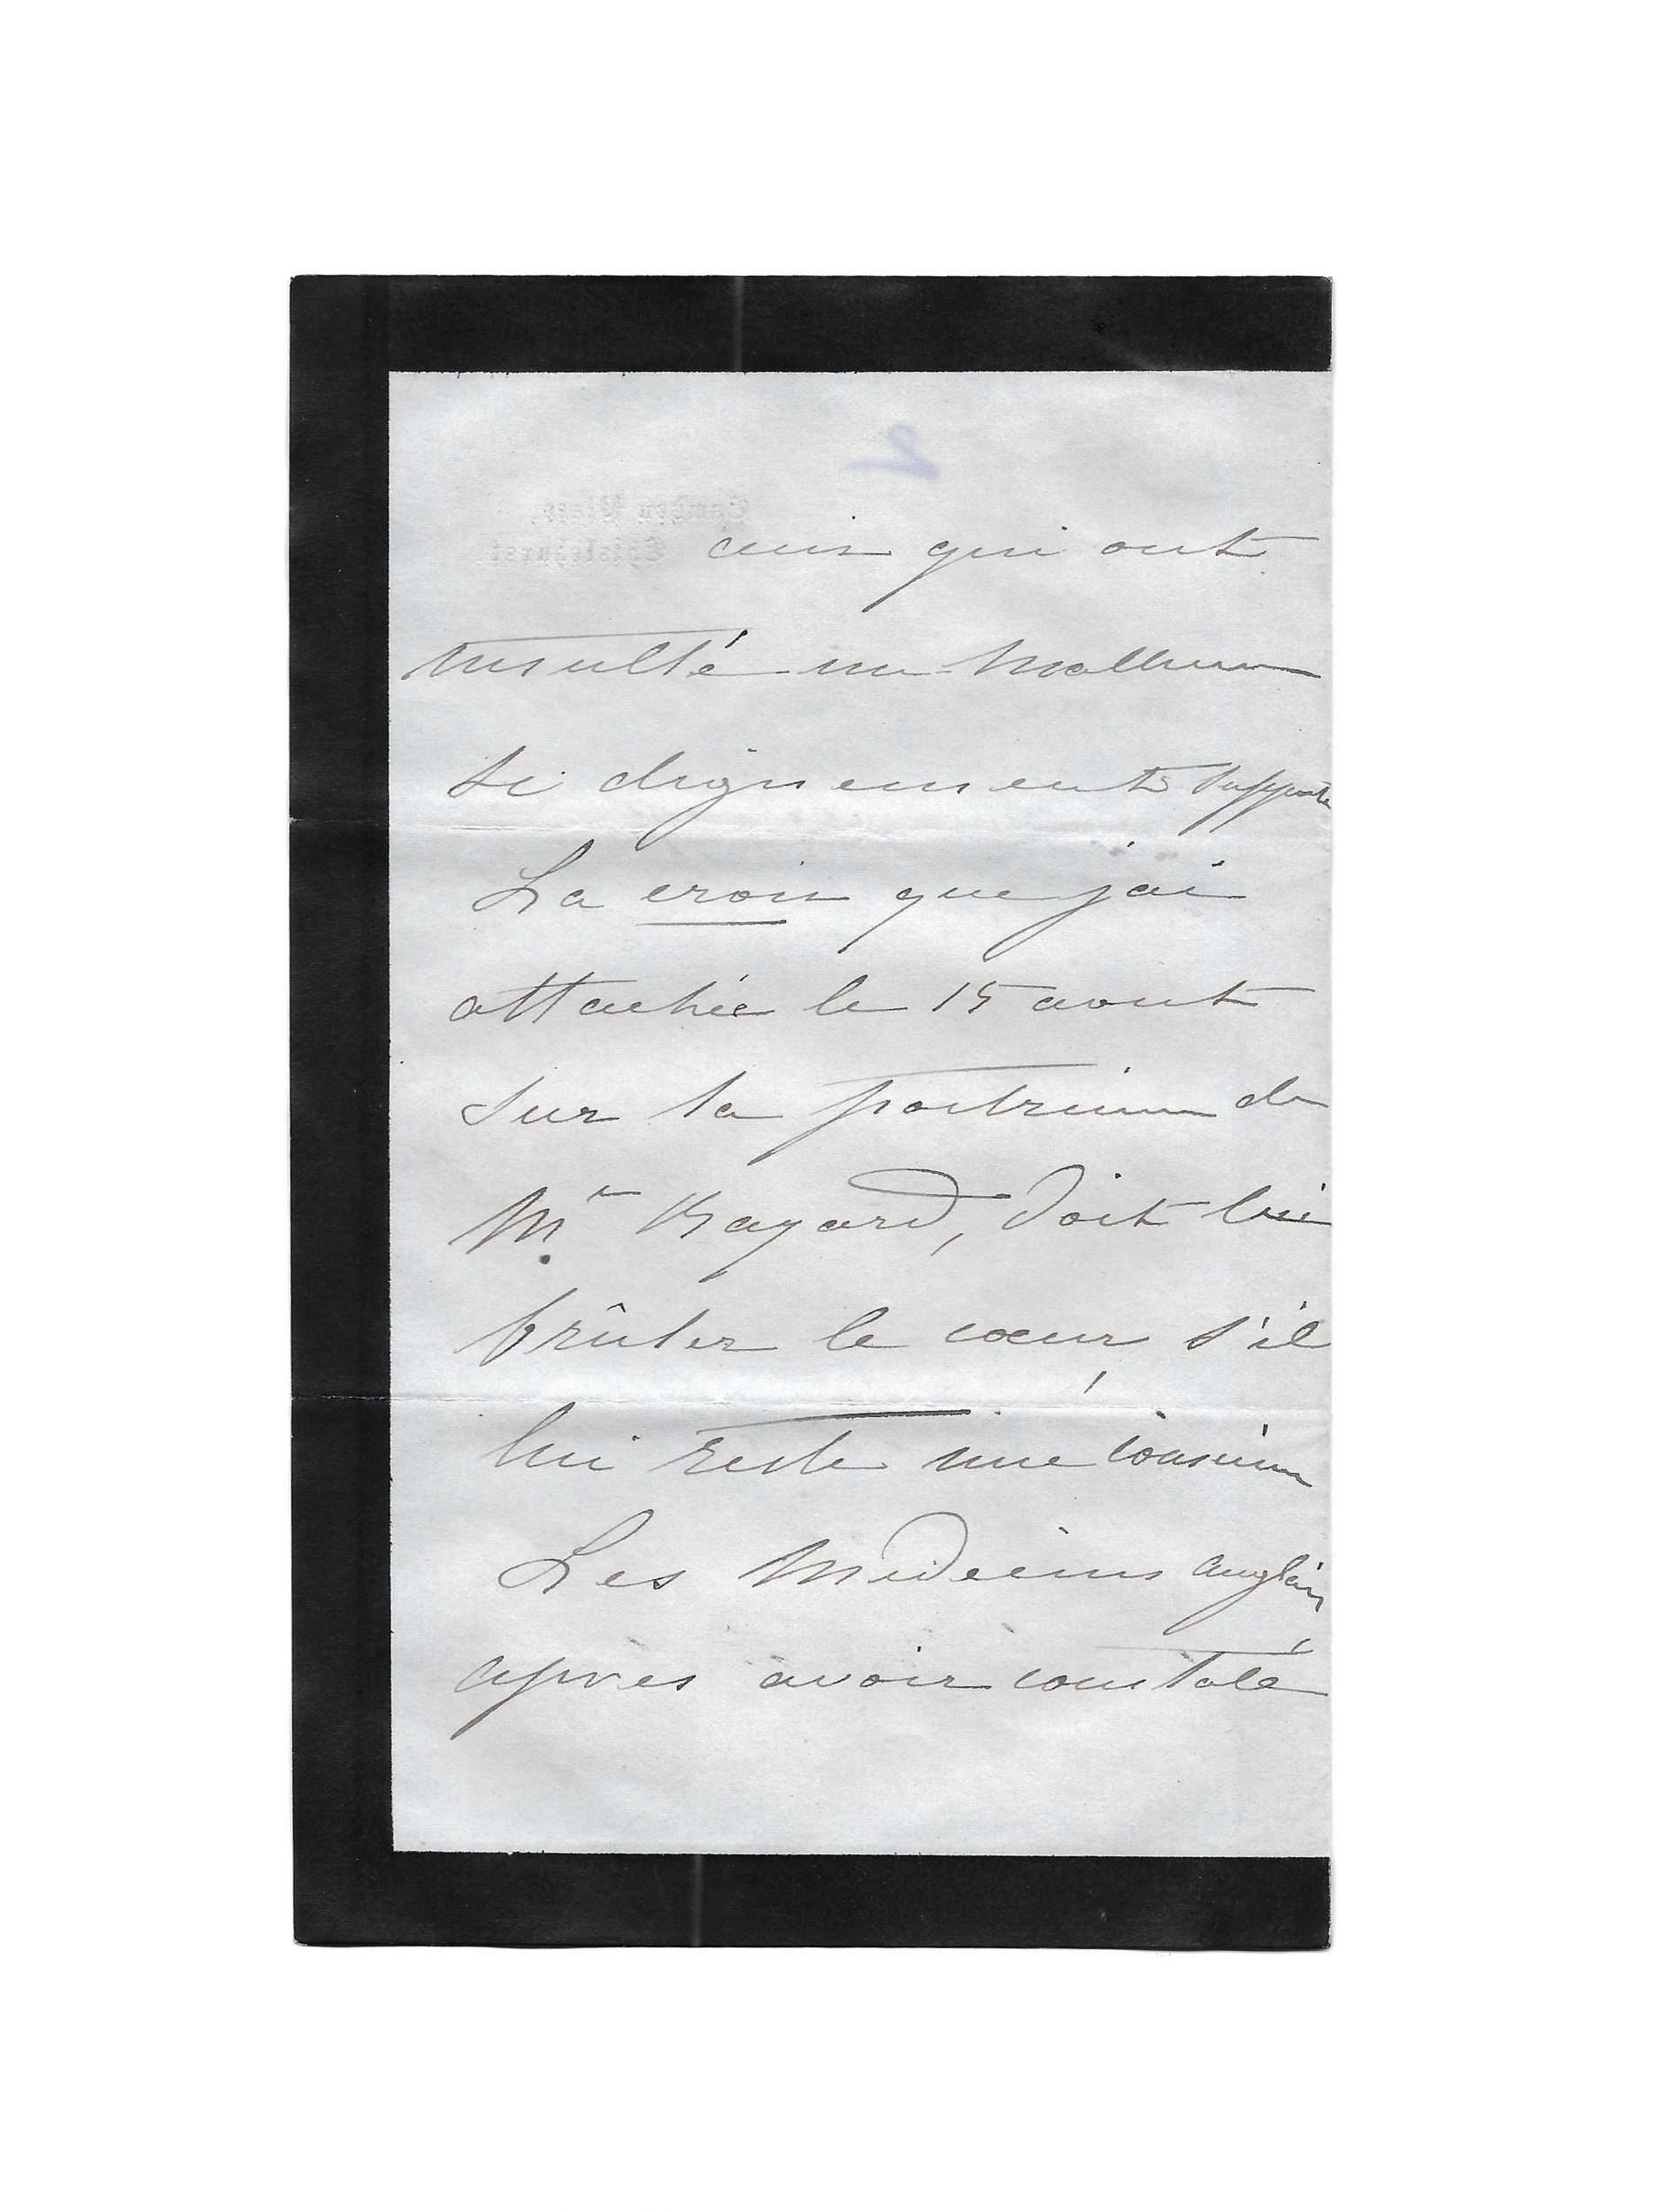 2
Camden Place,
Chislehurst.
ceux qui ont
insulté un Malheur
si dignement supporté
La croix que j'ai
attachée le 15 aout
sur la poitrine de
Mr Bayard, doit lui
brûler le cœur s'il
lui reste une
Les Médecins anglais
apres avoir constaté